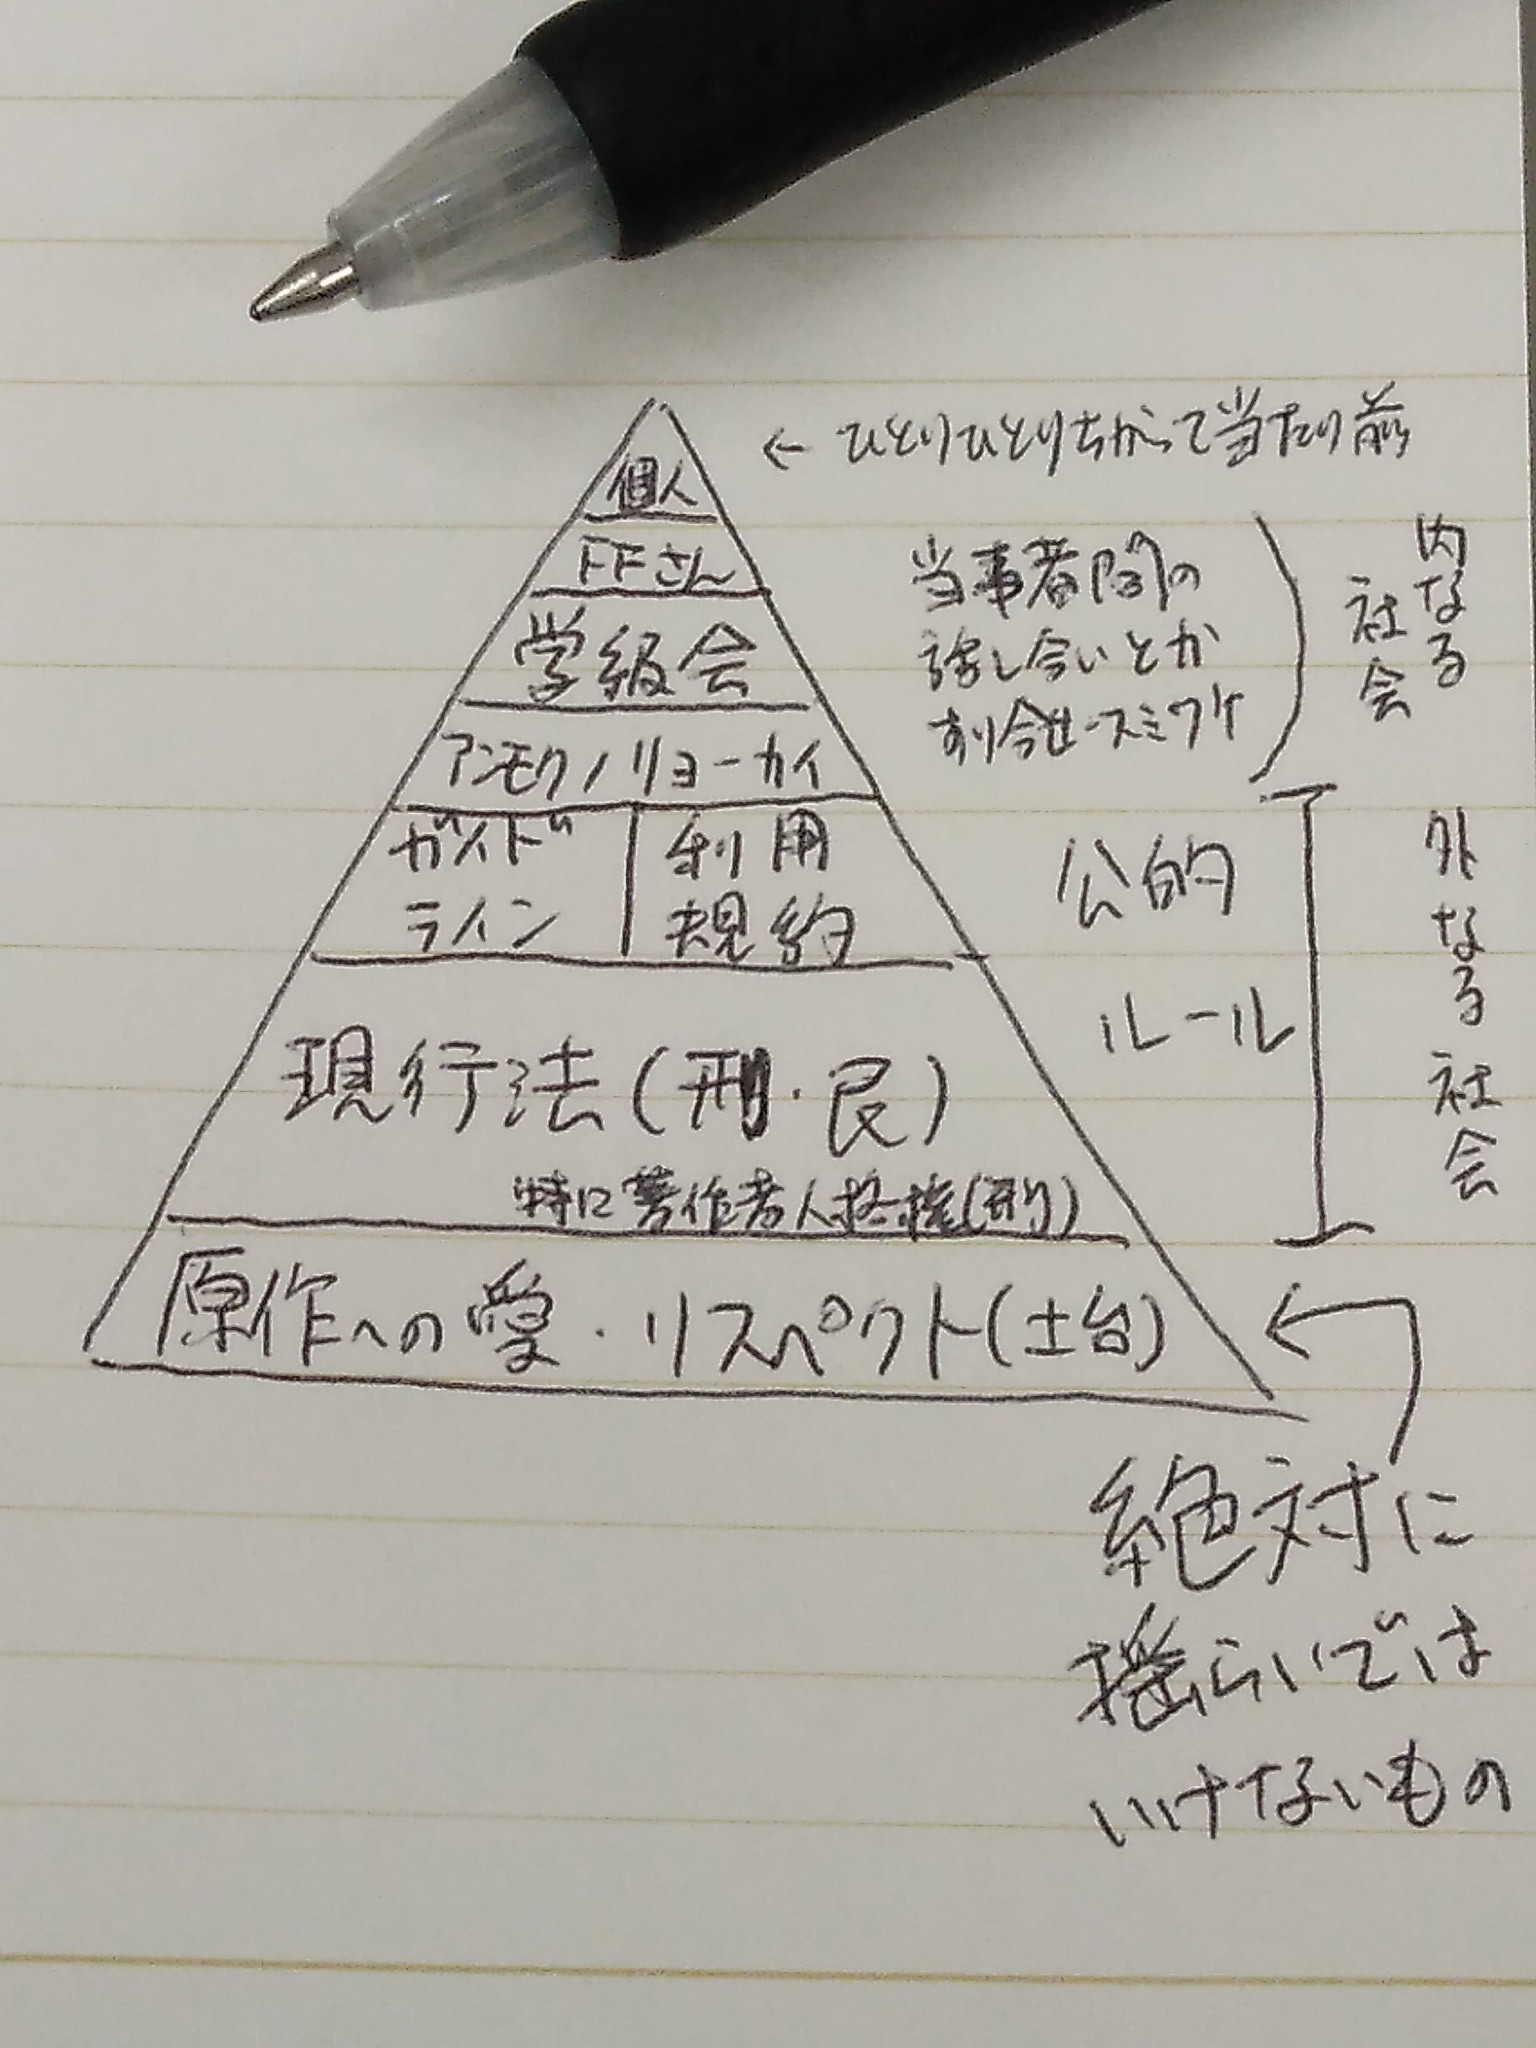 個人
← ひとりひとりちがって当たり前
FFさん
学級会
アンモクノリョーカイ
当事者間の
話し合いとか
すり合せ・スミワケ
内なる
社会
ガイド
ライン
利用
規約
現行法(刑・民)
特に著作者人格権(刑)
公的
ルール
外なる社会
原作への愛・リスペクト(土台)
絶対に
揺らいでは
いけないもの